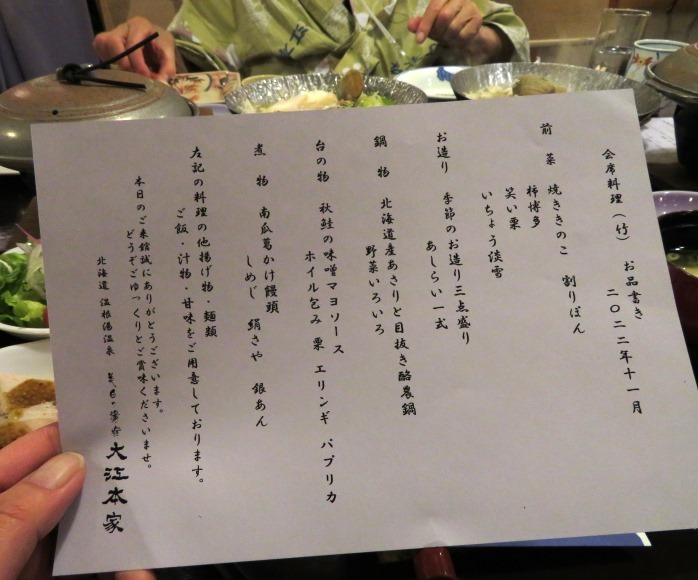 会席料理（竹）　お品書き
二〇二二年十一月
前　菜　焼ききのこ　割りぽん
柿博多
笑い栗
いちょう淡雪
お造り　季節のお造り三点盛り
あしらい一式
鍋　物　北海道産あさりと目抜き酪農鍋
野菜いろいろ
台の物　秋鮭の味噌マヨソース
ホイル包み　栗　エリンギ　パプリカ
煮　物　南瓜葛かけ饅頭
しめじ　絹さや　銀あん
左記の料理の他揚げ物・麺類
ご飯・汁物・甘味をご用意しております。
本日のご来館誠にありがとうございます。
どうぞごゆっくりとご賞味くださいませ。
北海道　温根湯温泉
大江本家